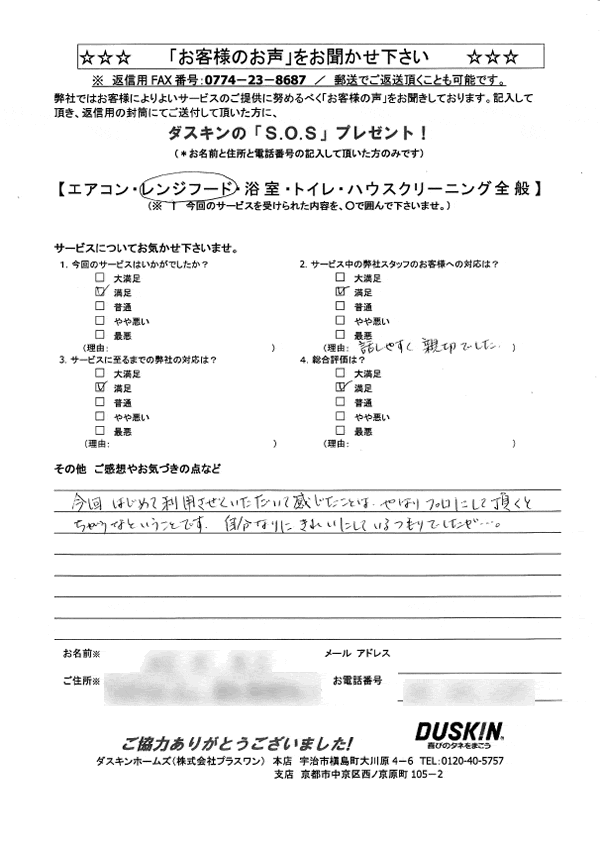 ☆☆☆ 「お客様のお声」をお聞かせ下さい ☆☆☆
※ 返信用FAX番号:0774-23-8687 / 郵送でご返送頂くことも可能です。
弊社ではお客様によりよいサービスのご提供に努めるべく「お客様の声」をお聞きしております。記入して
頂き、返信用の封筒にてご送付して頂いた方に、
ダスキンの「S.O.S」プレゼント!
(*お名前と住所と電話番号の記入して頂いた方のみです)
【エアコン・レンジフード・浴室・トイレ・ハウスクリーニング全般】
(※ ↑ 今回のサービスを受けられた内容を、〇で囲んで下さいませ。)
サービスについてお気かせ下さいませ。
1. 今回のサービスはいかがでしたか?
□ 大満足
☑ 満足
□ 普通
□ やや悪い
□ 最悪
(理由: )
2. サービス中の弊社スタッフのお客様への対応は?
□ 大満足
☑ 満足
□ 普通
□ やや悪い
□ 最悪
(理由: 話しやすく 親切でした. )
3. サービスに至るまでの弊社の対応は?
□ 大満足
☑ 満足
□ 普通
□ やや悪い
□ 最悪
(理由: )
4. 総合評価は?
□ 大満足
☑ 満足
□ 普通
□ やや悪い
□ 最悪
(理由: )
その他 ご感想やお気づきの点など
今回 はじめて利用させていただいて感じたことは、やはりプロにして頂くと
ちがうなということです. 自分なりに きれいにしているつもりでしたが…。
お名前※
メール アドレス
ご住所※
お電話番号
ご協力ありがとうございました!
DUSKIN
喜びのタネをまこう
ダスキンホームズ(株式会社プラスワン) 本店 宇治市槇島町大川原4-6 TEL:0120-40-5757
支店 京都市中京区西ノ京原町105-2